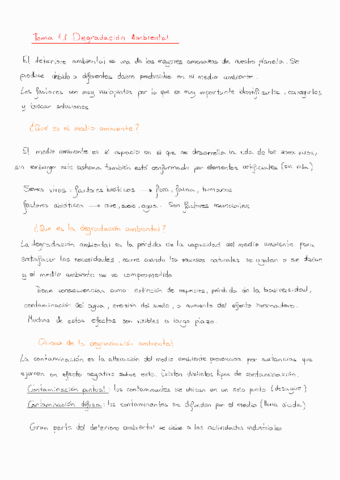 Tema 1.1 Degradación Ambiental
El deterioro ambiental es una de las mayores amenazas de nuestro planeta. Se
produce debido a diferentes daños producidos en el medio ambiente.
Los factores son muy variopintos por lo que es muy importante identificarlos, corregirlos
y buscar soluciones
¿Qué es el medio ambiente?
El medio ambiente es el espacio en el que se desarrolla la vida de los seres vivos,
sin embargo este sistema también está conformado por elementos artificiales (sin vida)
Seres vivos: factores bióticos → flora, fauna, humanos
factores abióticos → aire, suelo, agua. Son factores
¿Qué es la degradación ambiental?
La degradación ambiental es la pérdida de la capacidad del medio ambiente para
satisfacer las necesidades, ocurre cuando los recursos naturales se agotan o se dañan
y el medio ambiente se ve comprometido
Tiene consecuencias como: extinción de especies, pérdida de la biodiversidad,
contaminación del agua, erosión del suelo, o aumento del efecto invernadero.
Muchos de estos efectos son visibles a largo plazo.
Causas de la degradación ambiental
La contaminación es la alteración del medio ambiente provocada por sustancias que
ejercen un efecto negativo sobre esto. Existen distintos tipos de contaminación.
Contaminación puntual: los contaminantes se ubican en un solo punto (desagüe)
Contaminación difusa: los contaminantes se difunden por el medio (lluvia ácida)
Gran parte del deterioro ambiental se debe a las actividades industriales